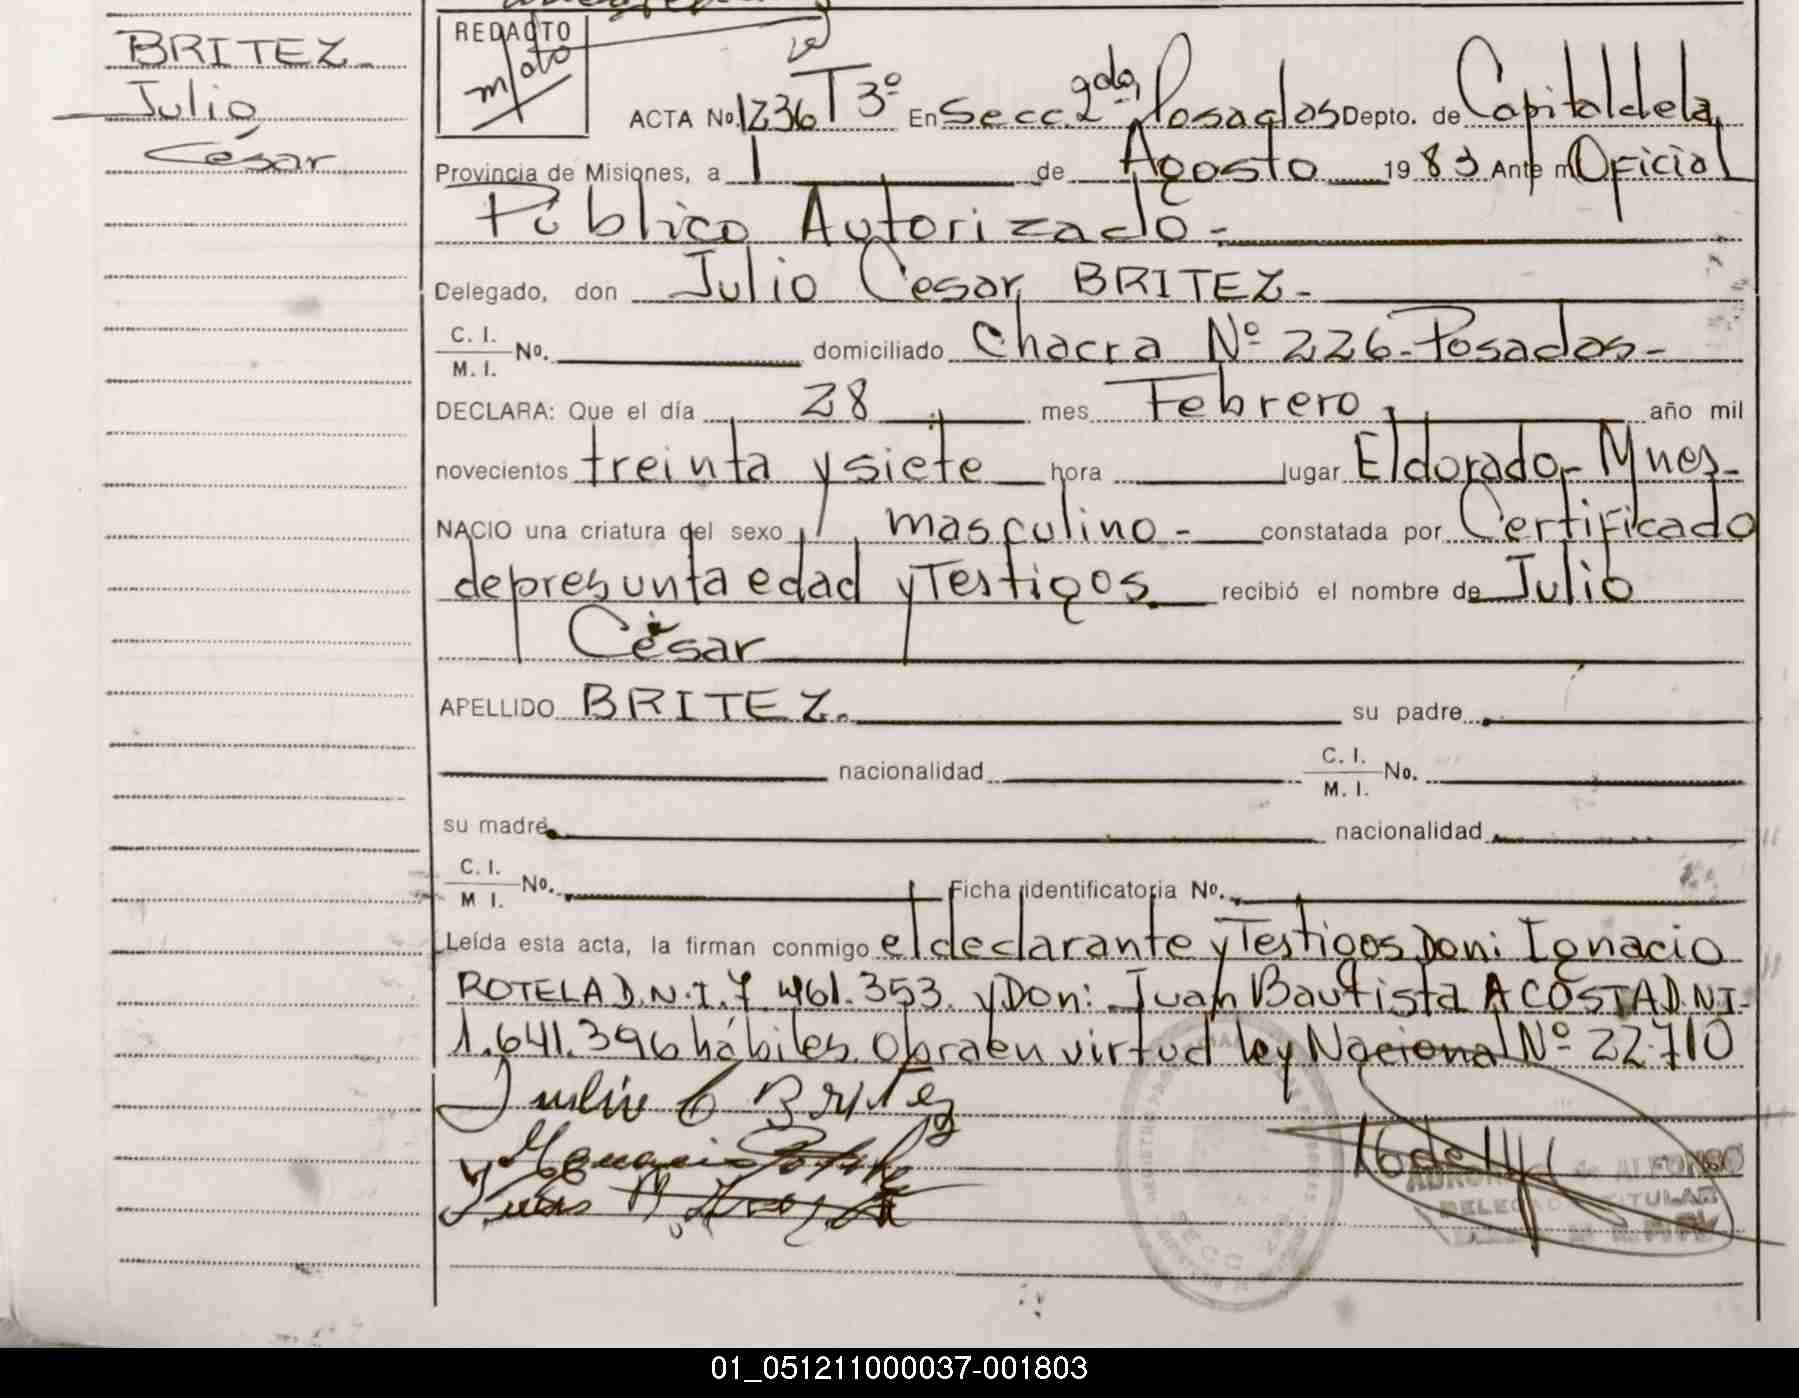 BRITEZ-
Julio
César
REDACTO
moto
ACTA No. 1236 T 3º En Secc. 2da Posadas Depto. de Capital de la
Provincia de Misiones, a 1 de Agosto 1983 Ante mi Oficial
Público Autorizado-
Delegado, don Julio Cesar BRITEZ-
C. I.
M. I. No. domiciliado Chacra Nº 226-Posadas-
DECLARA: Que el día 28 mes Febrero año mil
novecientos treinta y siete hora lugar Eldorado-Mnes-
NACIO una criatura del sexo masculino- constatada por Certificado
de presunta edad y Testigos recibió el nombre de Julio
César
APELLIDO BRITEZ. su padre
nacionalidad C. I.
M. I. No.
su madre nacionalidad
C. I.
M I. No. Ficha identificatoria No.
Leída esta acta, la firman conmigo el declarante y Testigos Don: Ignacio
ROTELA D.N.I. 7 461.353. y Don: Juan Bautista ACOSTA D.N.I-
1.641.396 hábiles. Obra en virtud ley Nacional Nº 22.710
Julio C Britez
de ALFONSO
DELEGADO TITULAR
SECC 2da
01_051211000037-001803